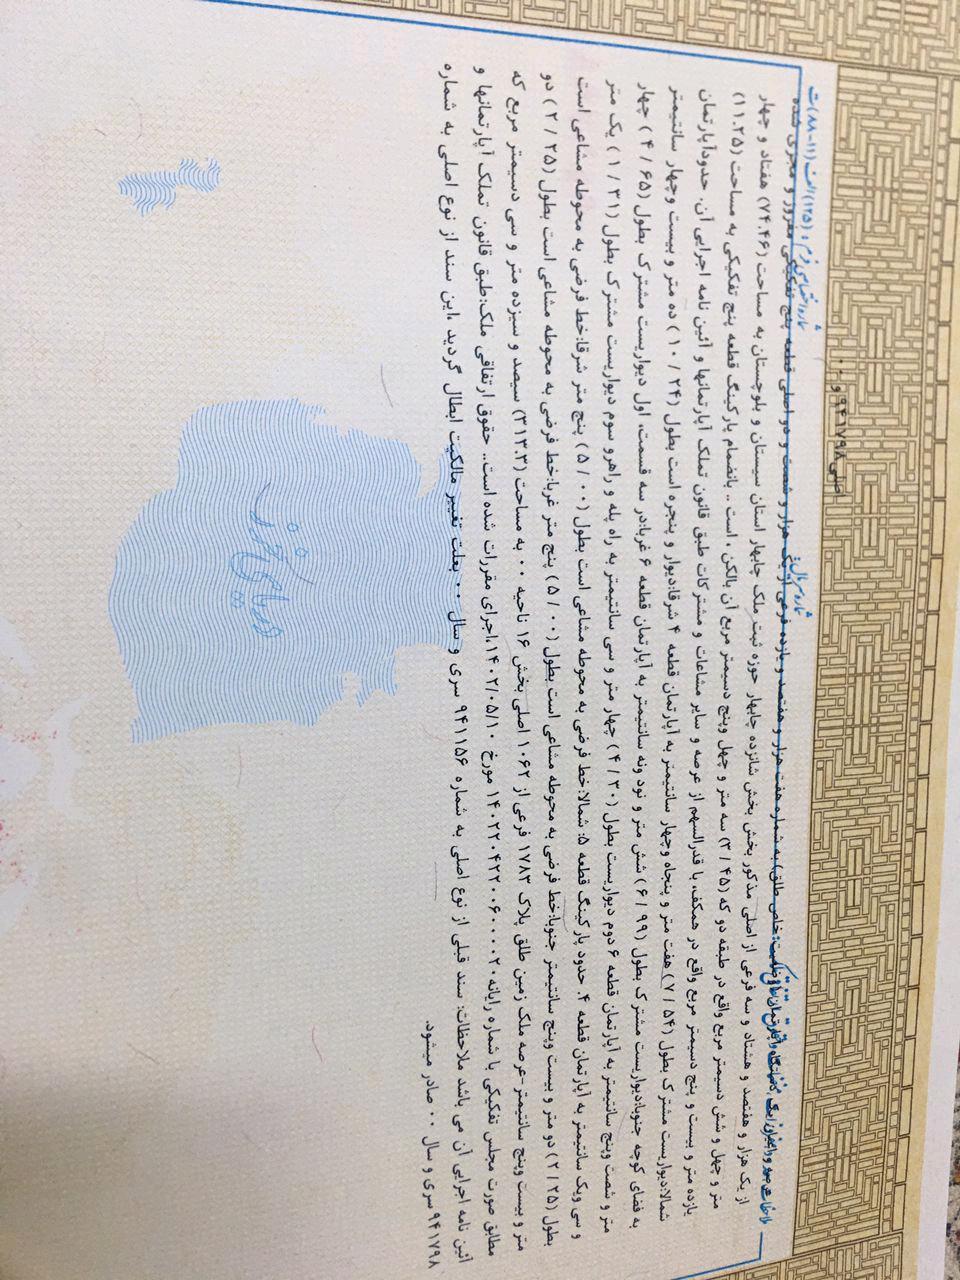 اصلی ۹۴۱۷۹۸ و ۰۰
شماره اختصاصی فرم: (۱۲۵) الف (۱۱-۸۸) ت
شماره سریال:
از یک هزار و هفتصد و هشتاد و سه فرعی از اصلی مذکور بخش بخش شانزده چابهار حوزه ثبت ملک چابهار استان سیستان و بلوچستان به مساحت (۷۴.۴۶) هفتاد و چهار
متر و چهل و شش دسیمتر مربع واقع در طبقه دو که (۳/۴۵) سه متر و چهل وپنج دسیمتر مربع آن بالکن، است .. بانضمام پارکینگ قطعه پنج تفکیکی به مساحت (۱۱.۲۵)
یازده متر و بیست و پنج دسیمتر مربع واقع در همکف، با قدرالسهم از عرصه و سایر مشاعات و مشترکات طبق قانون تملک آپارتمانها و آئین نامه اجرایی آن. حدودآپارتمان
شمالا:دیواریست مشترک بطول (۷/۵۴) هفت متر و پنجاه وچهار سانتیمتر به آپارتمان قطعه ۴ شرقا:دیوار و پنجره است بطول (۱۰/۲۴) ده متر و بیست وچهار سانتیمتر
به فضای کوچه جنوبا:دیواریست مشترک بطول (۶/۹۹) شش متر و نود ونه سانتیمتر به آپارتمان قطعه ۶ غربا:در سه قسمت، اول دیواریست مشترک بطول (۴/۶۵) چهار
متر و شصت وپنج سانتیمتر به آپارتمان قطعه ۶ دوم دیواریست بطول (۴/۳۰) چهار متر و سی سانتیمتر به راه پله و راهرو سوم دیواریست مشترک بطول (۱/۳۱) یک متر
و سی ویک سانتیمتر به آپارتمان قطعه ۴. حدود پارکینگ قطعه ۵: شمالا:خط فرضی به محوطه مشاعی است بطول (۵/۰۰) پنج متر شرقا:خط فرضی به محوطه مشاعی است
بطول (۲/۲۵) دو متر و بیست وپنج سانتیمتر جنوبا:خط فرضی به محوطه مشاعی است بطول (۵/۰۰) پنج متر غربا:خط فرضی به محوطه مشاعی است بطول (۲/۲۵) دو
متر و بیست وپنج سانتیمتر-عرصه ملک زمین طلق پلاک ۱۷۸۳ فرعی از ۱۰۶۲ اصلی بخش ۱۶ ناحیه ۰۰ به مساحت (۳۱۳.۳) سیصد و سیزده متر و سی دسیمتر مربع که
مطابق صورت مجلس تفکیکی با شماره رایانه مورخ ۱۴۰۲/۰۵/۱۰،اجرای مقررات شده است.. حقوق ارتفاقی ملک:طبق قانون تملک آپارتمانها و
آئین نامه اجرایی آن می باشد ملاحظات: سند قبلی از نوع اصلی به شماره ۹۴۱۱۵۶ سری و سال ۰۰ بعلت تغییر مالکیت ابطال گردید ،این سند از نوع اصلی به شماره
۹۴۱۷۹۸ سری و سال ۰۰ صادر میشود.
دریای خزر